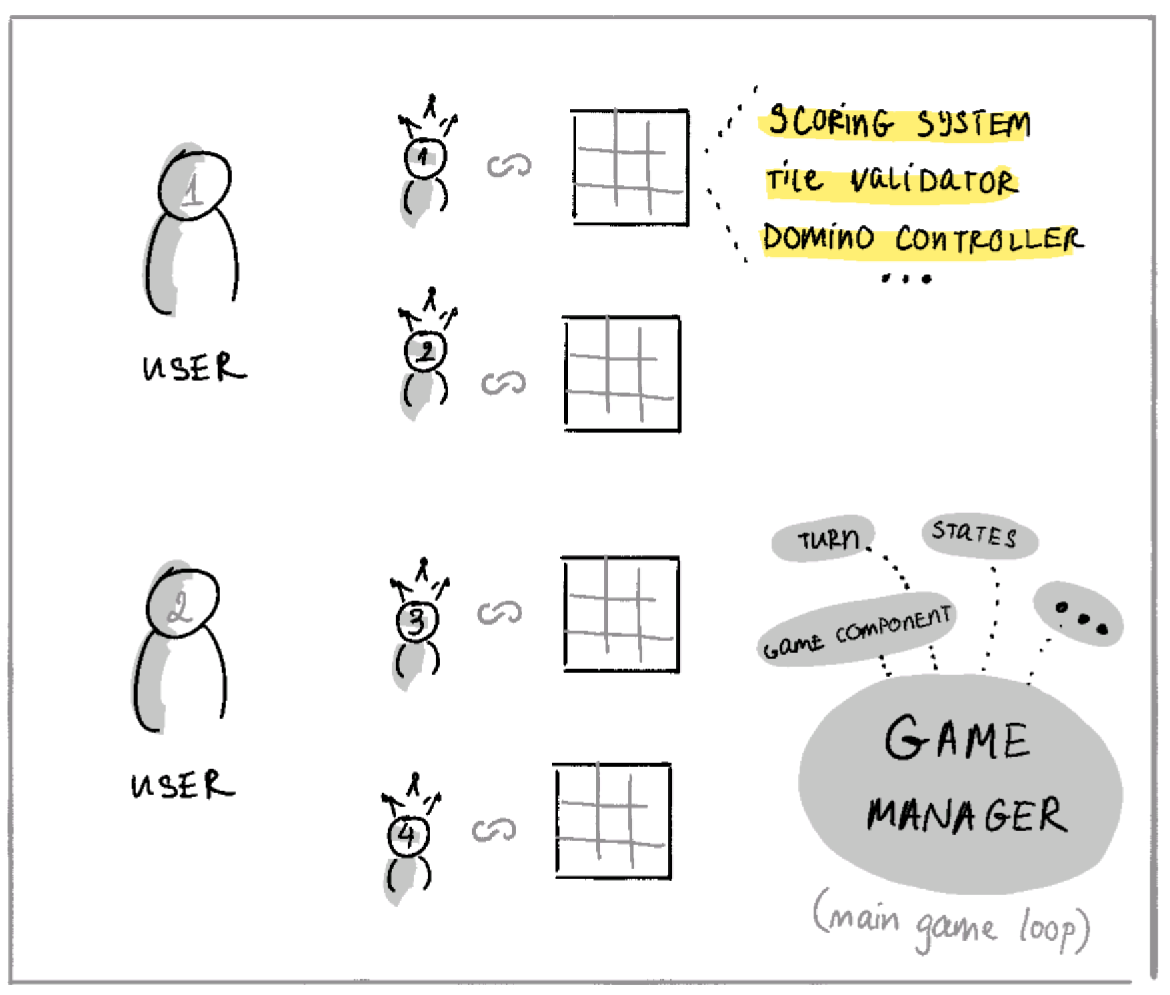 1
USER
1
2
SCORING SYSTEM
TILE VALIDATOR
DOMINO CONTROLLER
...
2
USER
3
4
TURN
STATES
GAME COMPONENT
...
GAME
MANAGER
(main game loop)